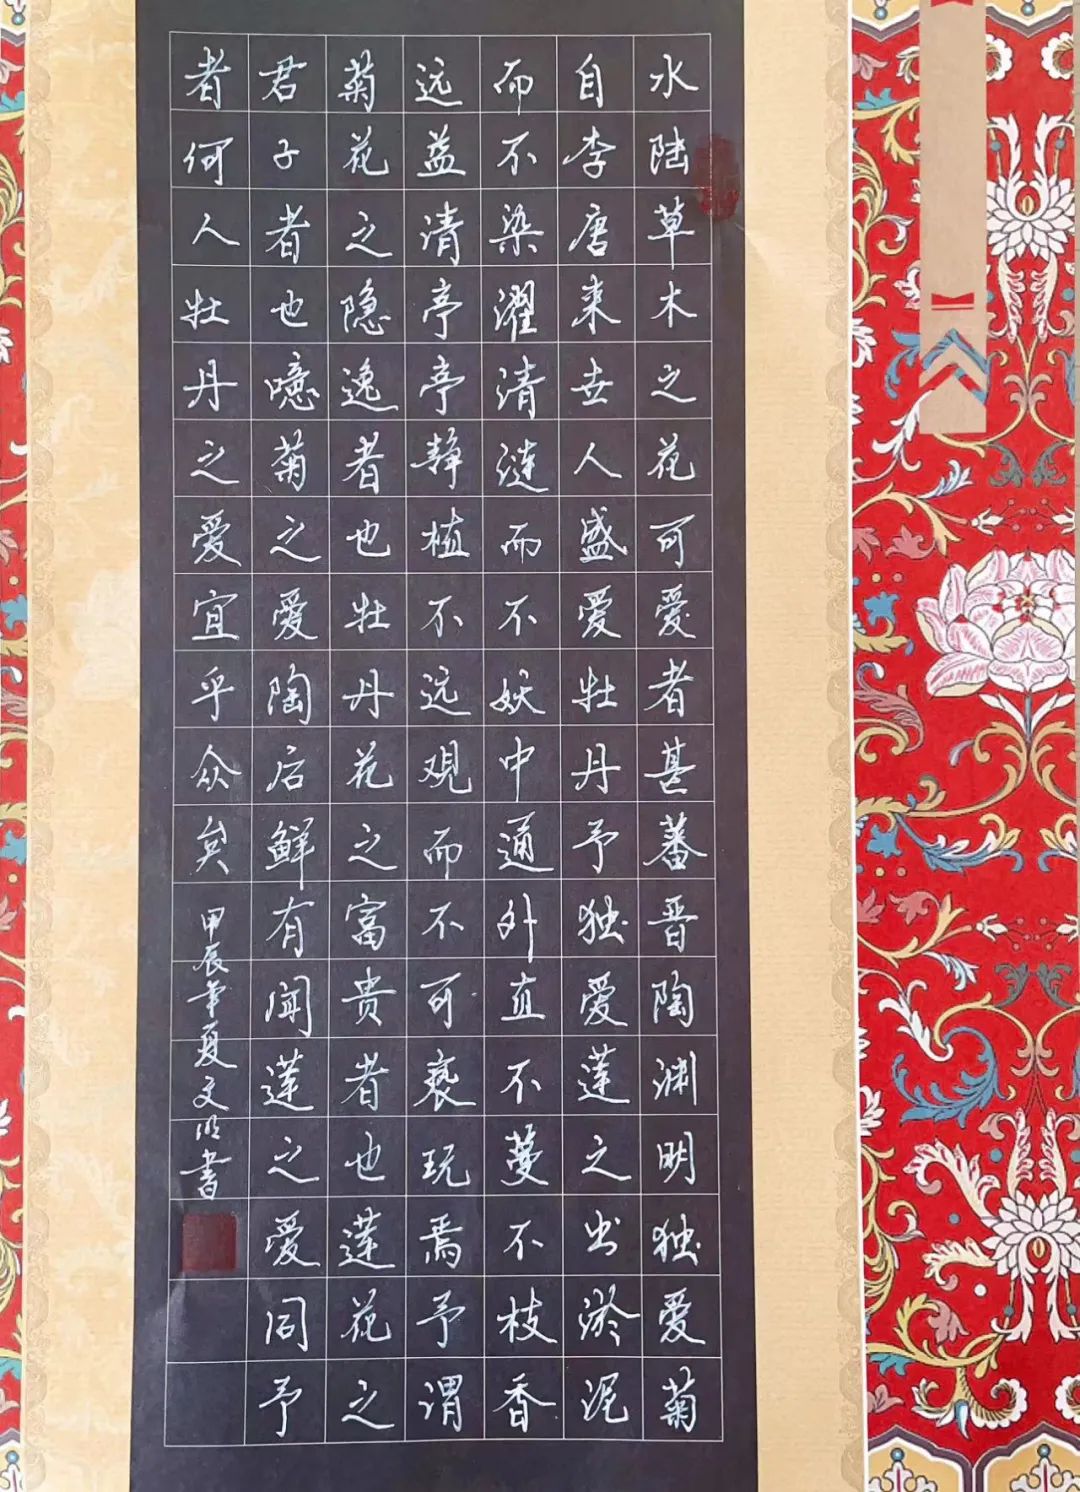 水陆草木之花可爱者甚蕃晋陶渊明独爱菊
自李唐来世人盛爱牡丹予独爱莲之出淤泥
而不染濯清涟而不妖中通外直不蔓不枝香
远益清亭亭静植不远观而不可亵玩焉予谓
菊花之隐逸者也牡丹花之富贵者也莲花之
君子者也噫菊之爱陶后鲜有闻莲之爱同予
者何人牡丹之爱宜乎众矣 甲辰年夏文明书